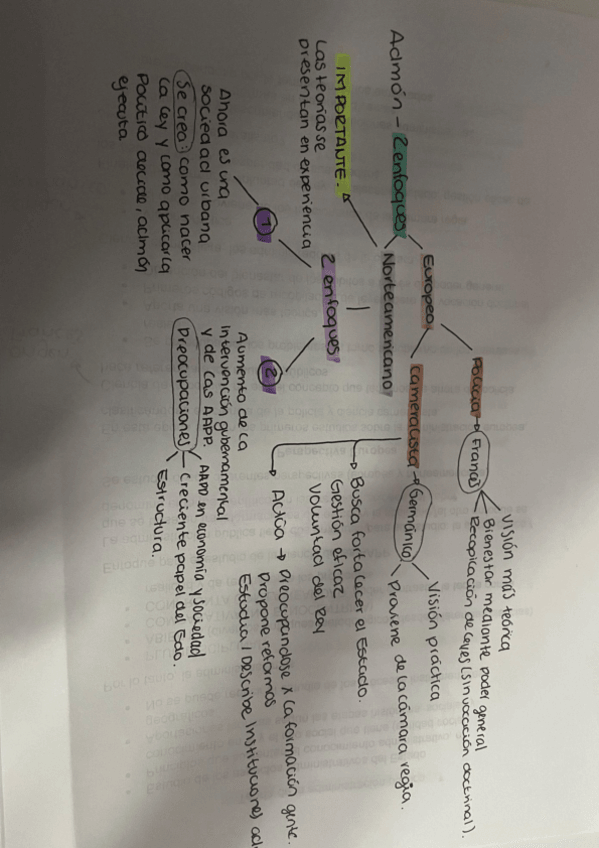 Admón - 2 enfoques
Europeo
Policía → Francés
Visión más teórica
Bienestar mediante poder general
Recopilación de leyes (sin vocación doctrinal).
Cameralista → Germánico
Visión práctica
Proviene de la cámara regia.
Busca fortalecer el Estado.
Gestión eficaz
Voluntad del Rey
Actúa → Preocupándose x la formación gente.
Propone reformas
Estudia / Describe Instituciones
Norteamericano
IMPORTANTE.
Las teorías se
presentan en experiencia
2 enfoques
1
Ahora es una
sociedad urbana
Se crea: como hacer
la ley y como aplicarla
Político decide, admón
ejecuta
2
Aumento de la
intervención gubernamental
y de las AAPP.
Preocupaciones
AAPP en economía y sociedad
Creciente papel del Edo.
Estructura.